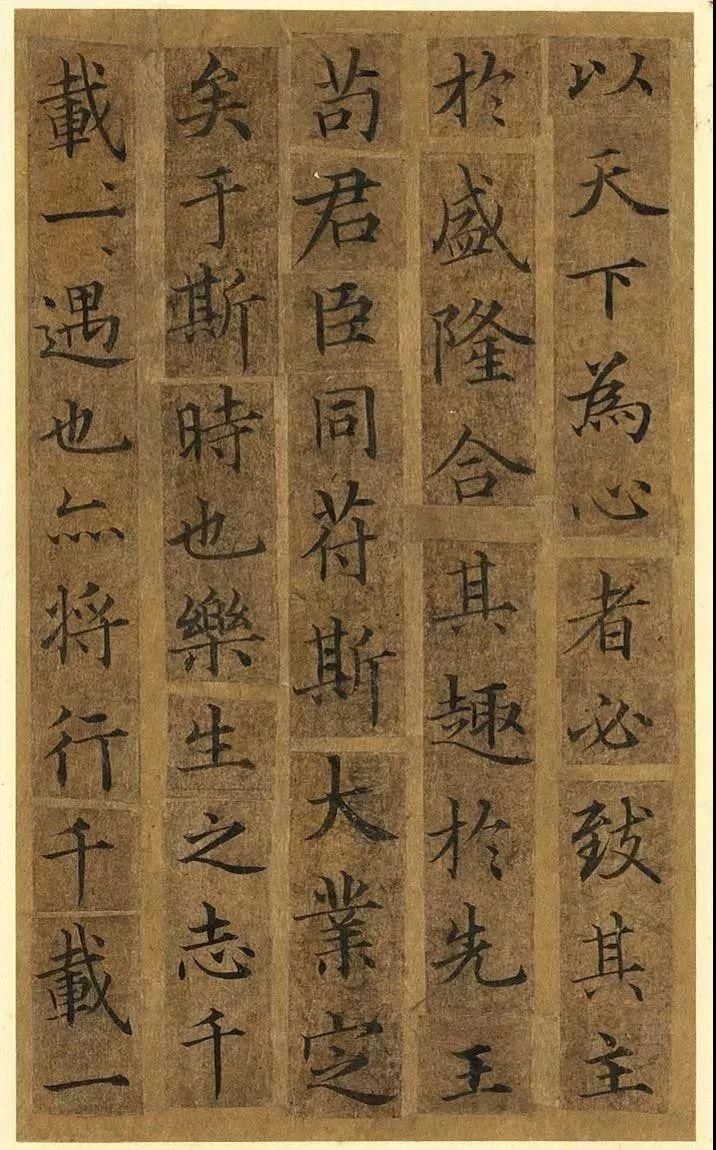 以天下為心者必致其主
於盛隆合其趣於先王
苟君臣同苻斯大業定
矣于斯時也樂生之志千
載一〻遇也亦將行千載一